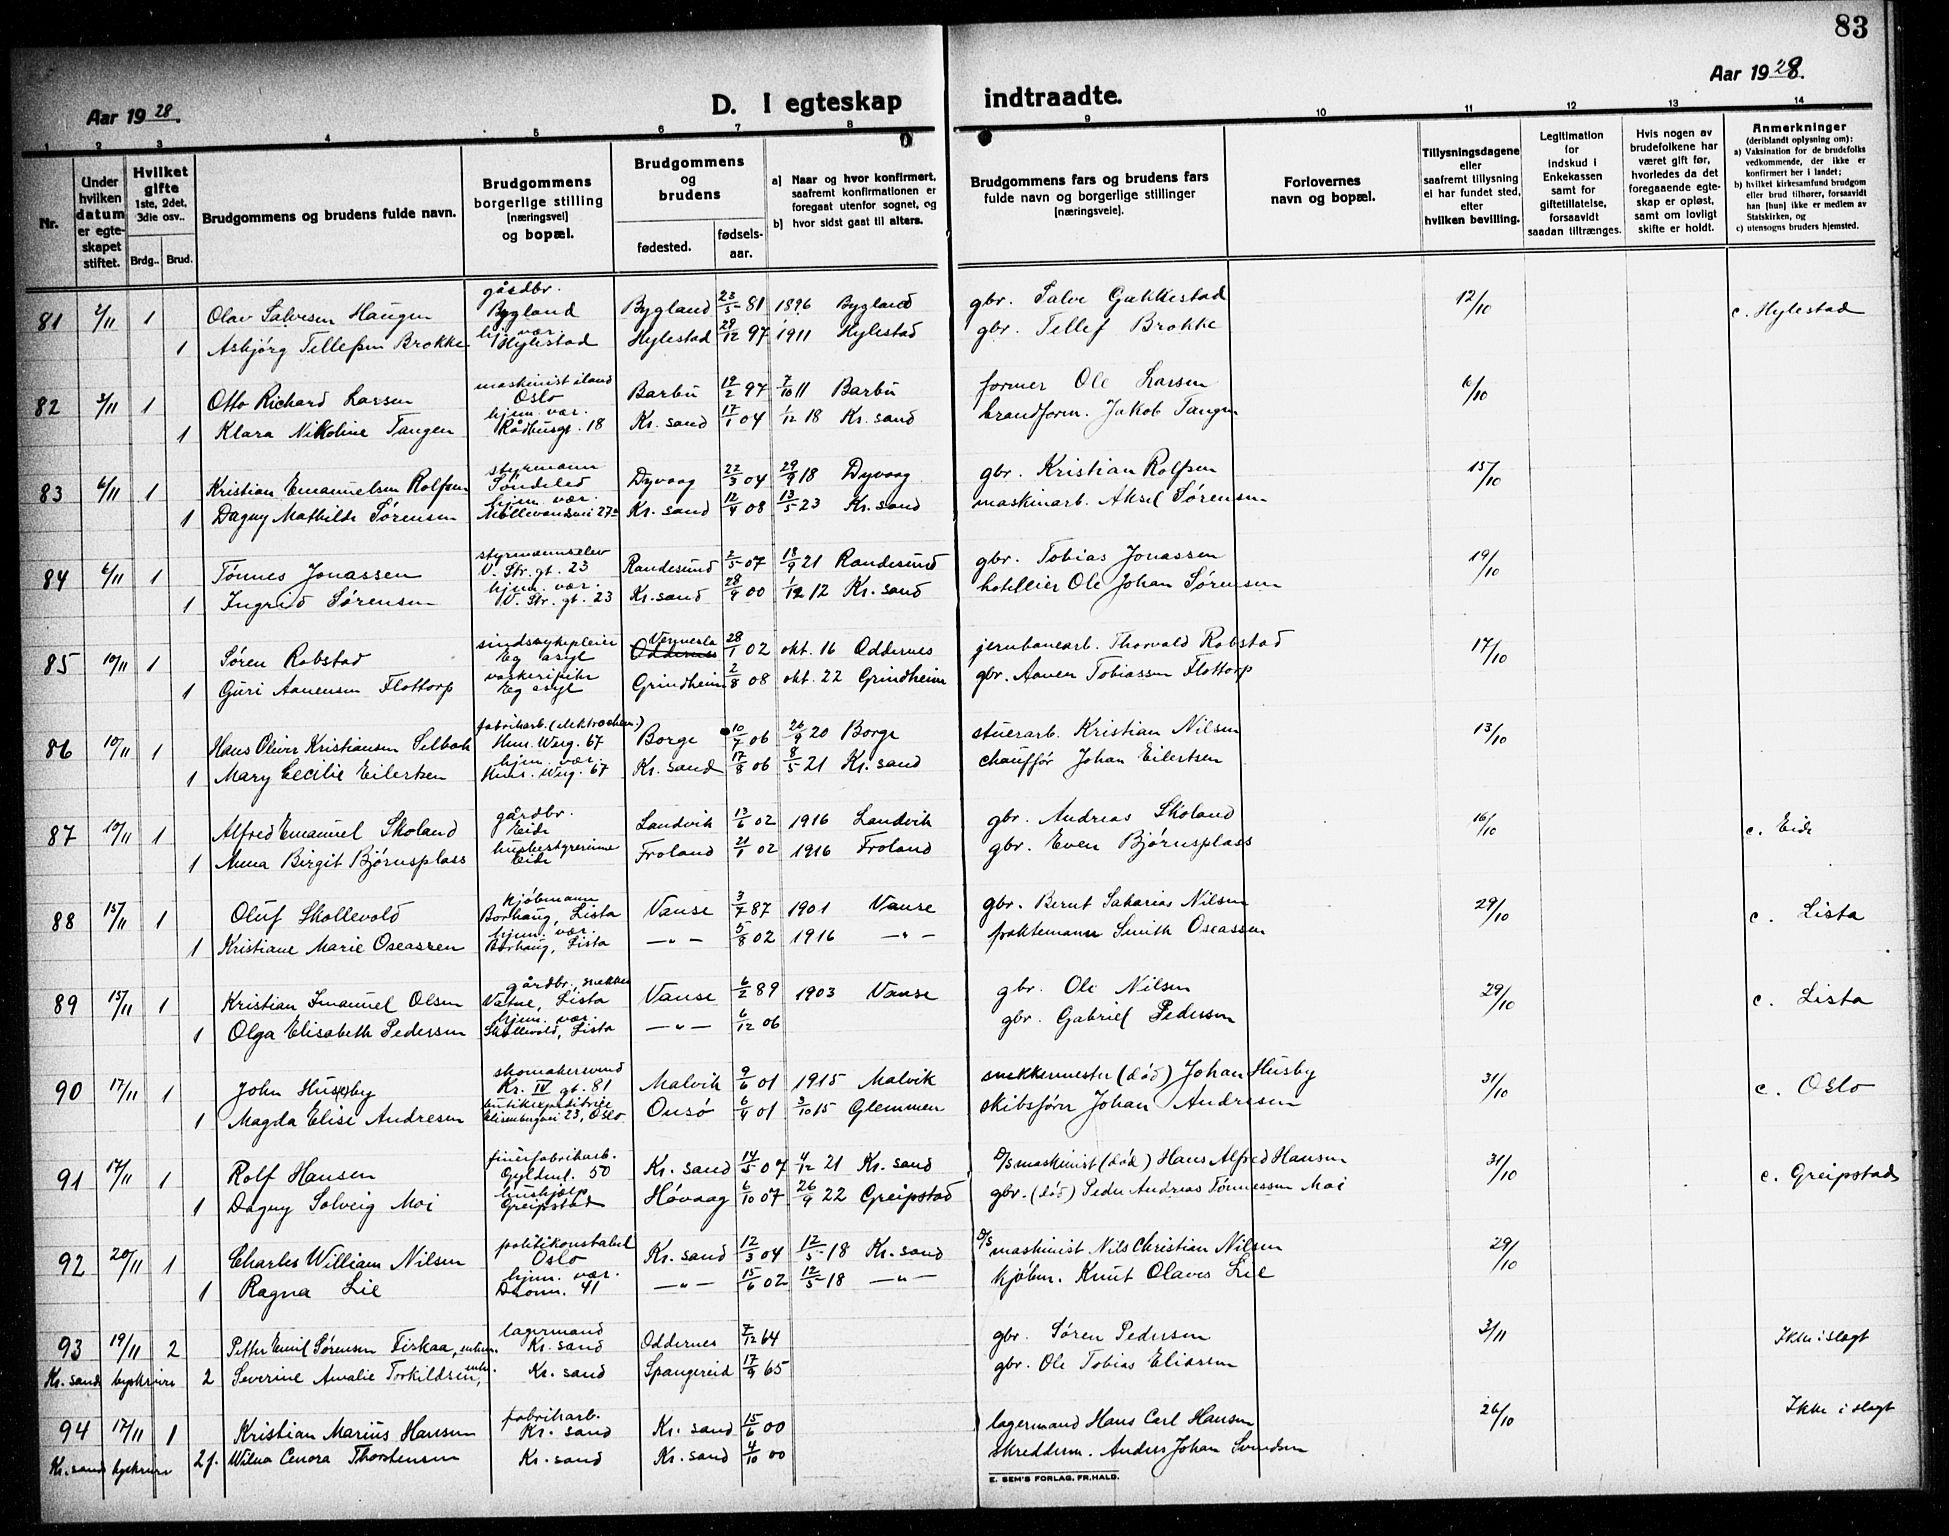 83
Aar 1928. D. I egteskap indtraadte. Aar 1928.
1 2 3 4 5 6 7 8 9 10 11 12 13 14
Nr.
Under hvilken datum er egteskapet stiftet.
Hvilket gifte 1ste, 2det, 3die osv..
Brdg.. Brud.
Brudgommens og brudens fulde navn.
Brudgommens borgerlige stilling [næringsvei] og bopæl.
Brudgommens og brudens
fødested. fødselsaar.
a) Naar og hvor konfirmert, saafremt konfirmationen er foregaat utenfor sognet, og
b) hvor sidst gaat til alters.
Brudgommens fars og brudens fars fulde navn og borgerlige stillinger [næringsveie].
Forlovernes navn og bopæl.
Tillysningsdagene eller saafremt tillysning ei har fundet sted, efter hvilken bevilling.
Legitimation for indskud i Enkekassen samt for giftetillatelse, forsaavidt saadan tiltrænges.
Hvis nogen av brudefolkene har været gift før, hvorledes da det foregaaende egteskap er opløst, samt om lovligt skifte er holdt.
Anmerkninger (deriblandt oplysning om):
a) Vaksination for de brudefolks vedkommende, der ikke er konfirmert her i landet;
b) hvilket kirkesamfund brudgom eller brud tilhører, forsaavidt han [hun] ikke er medlem av Statskirken, og
c) utensogns bruders hjemsted.
81 2/11 1 Olav Salvesen Haugen gårdbr. Bygland Bygland 23/5 81 1896 Bygland gbr. Salve Gukkestad 12/10 c. Hylestad
1 Asbjørg Tellefsen Brokke hj. vær. Hylestad Hylestad 29/12 97 1911 Hylestad gbr. Tellef Brokke
82 3/11 1 Otto Richard Larsen maskinist iland Oslo Barbu 19/2 97 7/10 11 Barbu former Ole Larsen 6/10
1 Klara Nikoline Tangen hjem. vær. Rådhusgt. 18 Kr. sand 17/1 04 1/12 18 Kr. sand brandform. Jakob Tangen
83 6/11 1 Kristian Emanuelsen Rolfsen styrmann Søndeled Dyvaag 22/3 04 29/9 18 Dyvaag gbr. Kristian Rolfsen 15/10
1 Dagny Mathilde Sørensen hjem. vær. Møllevandsvei 27a Kr. sand 12/4 08 13/5 23 Kr. sand maskinarb. Aksel Sørensen
84 6/11 1 Tønnes Jonassen styrmannselev V. Str. gt. 23 Randesund 2/5 07 18/9 21 Randesund gbr. Tobias Jonassen 19/10
1 Ingrid Sørensen hjem. vær. V. Str. gt. 23 Kr. sand 28/9 00 1/12 12 Kr. sand hotellier Ole Johan Sørensen
85 10/11 1 Søren Robstad sindssykepleier Eg asyl Vennesla Oddernes 28/1 02 okt. 16 Oddernes jernbanearb. Thorvald Robstad 17/10
1 Guri Aanensen Flottorp vaskeripike Eg asyl Grindheim 2/8 08 okt. 22 Grindheim gbr. Aanen Tobiassen Flottorp
86 10/11 1 Hans Oliver Kristiansen Selbak fabrikarb. (elektrochem.) Henr. Werg. 67 Borge 10/7 06 26/9 20 Borge stuerarb. Kristian Nilsen 13/10
1 Mary Cecilie Eilertsen hjem. vær. Henr. Werg. 67 Kr. sand 17/8 06 8/5 21 Kr. sand chauffør Johan Eilertsen
87 10/11 1 Alfred Emanuel Skoland gårdbr. Eide Landvik 13/6 02 1916 Landvik gbr. Andreas Skoland 16/10 c. Eide
1 Anna Birgit Bjørnsplass husbestyrerinne Eide Froland 21/1 02 1916 Froland gbr. Even Bjørnsplass
88 15/11 1 Oluf Skollevold kjøbmann Borhaug, Lista Vanse 3/7 87 1901 Vanse gbr. Bernt Sakarias Nilsen 29/10 c. Lista
1 Kristiane Marie Oseassen hjem. vær. Borhaug, Lista —„— 5/8 02 1916 —„— fraktemann Smith Oseassen
89 15/11 1 Kristian Imanuel Olsen gårdbr., snekker Vatne, Lista Vanse 6/2 89 1903 Vanse gbr. Ole Nilsen 29/10 c. Lista
1 Olga Elisabeth Pedersen hjem. vær. Skollevold, Lista —„— 6/12 06 gbr. Gabriel Pedersen
90 17/11 1 John Huseby skomakersvend Kr. IV gt. 81 Malvik 9/6 01 1915 Malvik snekkermester (død) Johan Husby 31/10 c. Oslo
1 Magda Elise Andresen 23, Oslo Onsø 6/4 01 3/10 15 Glemmen skibsfører Johan Andresen
91 17/11 1 Rolf Hansen finerfabrikarb. Gyldenl. 50 Kr. sand 14/5 07 4/12 21 Kr. sand D/S maskinist (død) Hans Alfred Hansen 31/10 c. Greipstad
1 Dagny Solveig Moi hushjelp Greipstad Høvaag 6/10 07 26/9 22 Greipstad gbr. (død) Peder Andreas Tønnessen Moi
92 20/11 1 Charles William Nilsen politikonstabel Oslo Kr. sand 12/3 04 12/5 18 Kr. sand D/S maskinist Nils Christian Nilsen 29/10
1 Ragna Lie hjem. vær. Dronn. 41 —„— 15/6 02 12/5 18 —„— kjøbm. Knut Olaves Lie
93 19/11 2 Petter Emil Sørensen Fiskaa, enkem. lagermand Kr. sand Oddernes 7/12 64 gbr. Søren Pedersen 3/11 Ikke i slegt
Kr. sands byskriver 2 Severine Amalie Torkildsen, enke. Kr. sand Spangereid 17/9 65 gbr. Ole Tobias Eliassen
94 17/11 1 Kristian Marius Hansen fabrikarb. Kr. sand Kr. sand 15/6 00 lagermand Hans Carl Hansen 26/10 Ikke i slegt
Kr. sands byskriver 2 f. Wilna Cenora Thorstensen Kr. sand Kr. sand 4/10 00 skredderm. Anders Johan Svendsen
E. SEM'S FORLAG, FR.HALD.